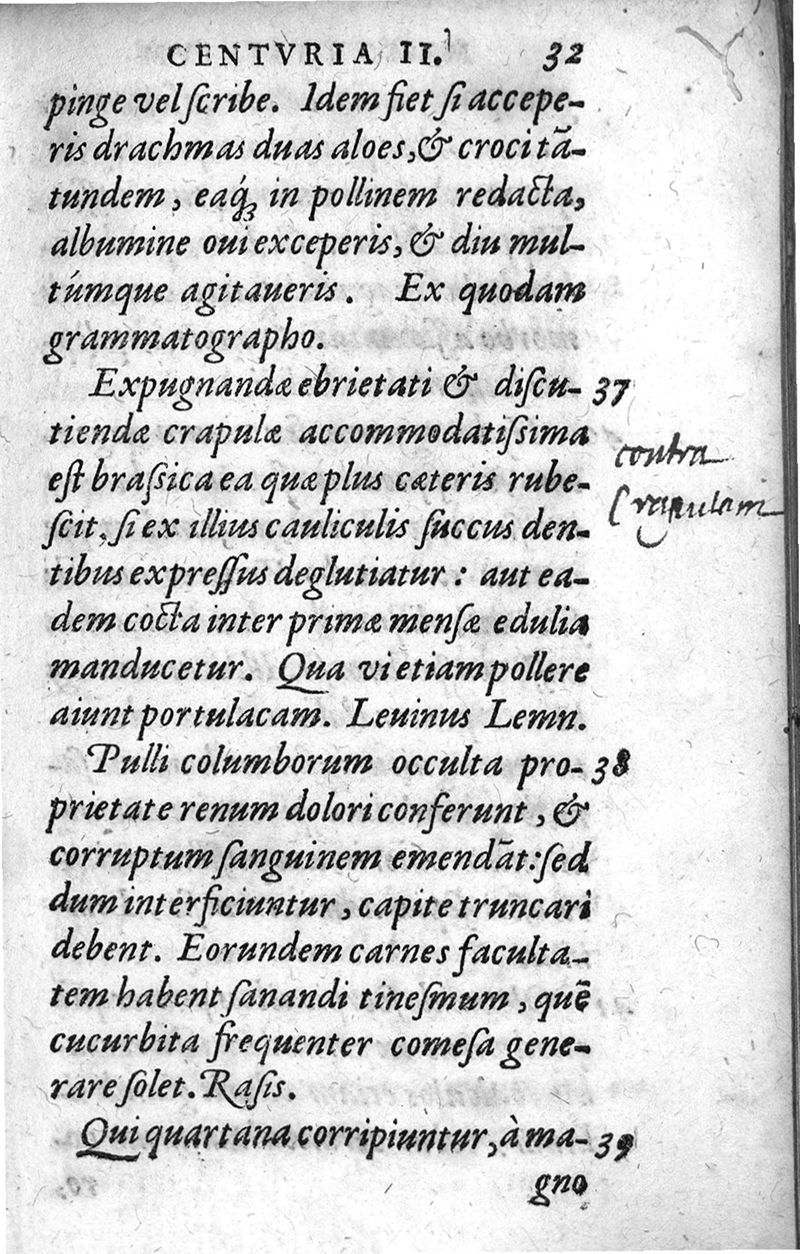 CENTVRIA II. 32
pinge vel ſcribe. Idem fiet ſi accepe-
ris drachmas duas aloes, & croci tā-
tundem, eáq́; in pollinem redacta,
albumine oui exceperis, & diu mul-
túmque agitaueris. Ex quodam
grammatographo.
Expugnandæ ebrietati & diſcu- 37
tiendæ crapulæ accommodatiſsima
eſt braſsica ea quæ plus cæteris rube-
ſcit, ſi ex illius cauliculis ſuccus den-
tibus expreſſus deglutiatur: aut ea-
dem cocta inter primæ menſæ edulia
manducetur. Qua vi etiam pollere
aiunt portulacam. Leuinus Lemn.
contra
Crapulam
Pulli columborum occulta pro- 38
prietate renum dolori conferunt, &
corruptum ſanguinem emendāt: ſed
dum interficiuntur, capite truncari
debent. Eorundem carnes faculta-
tem habent ſanandi tineſmum, quē
cucurbita frequenter comeſa gene-
rare ſolet. Raſis.
Qui quartana corripiuntur, à ma- 39
gno